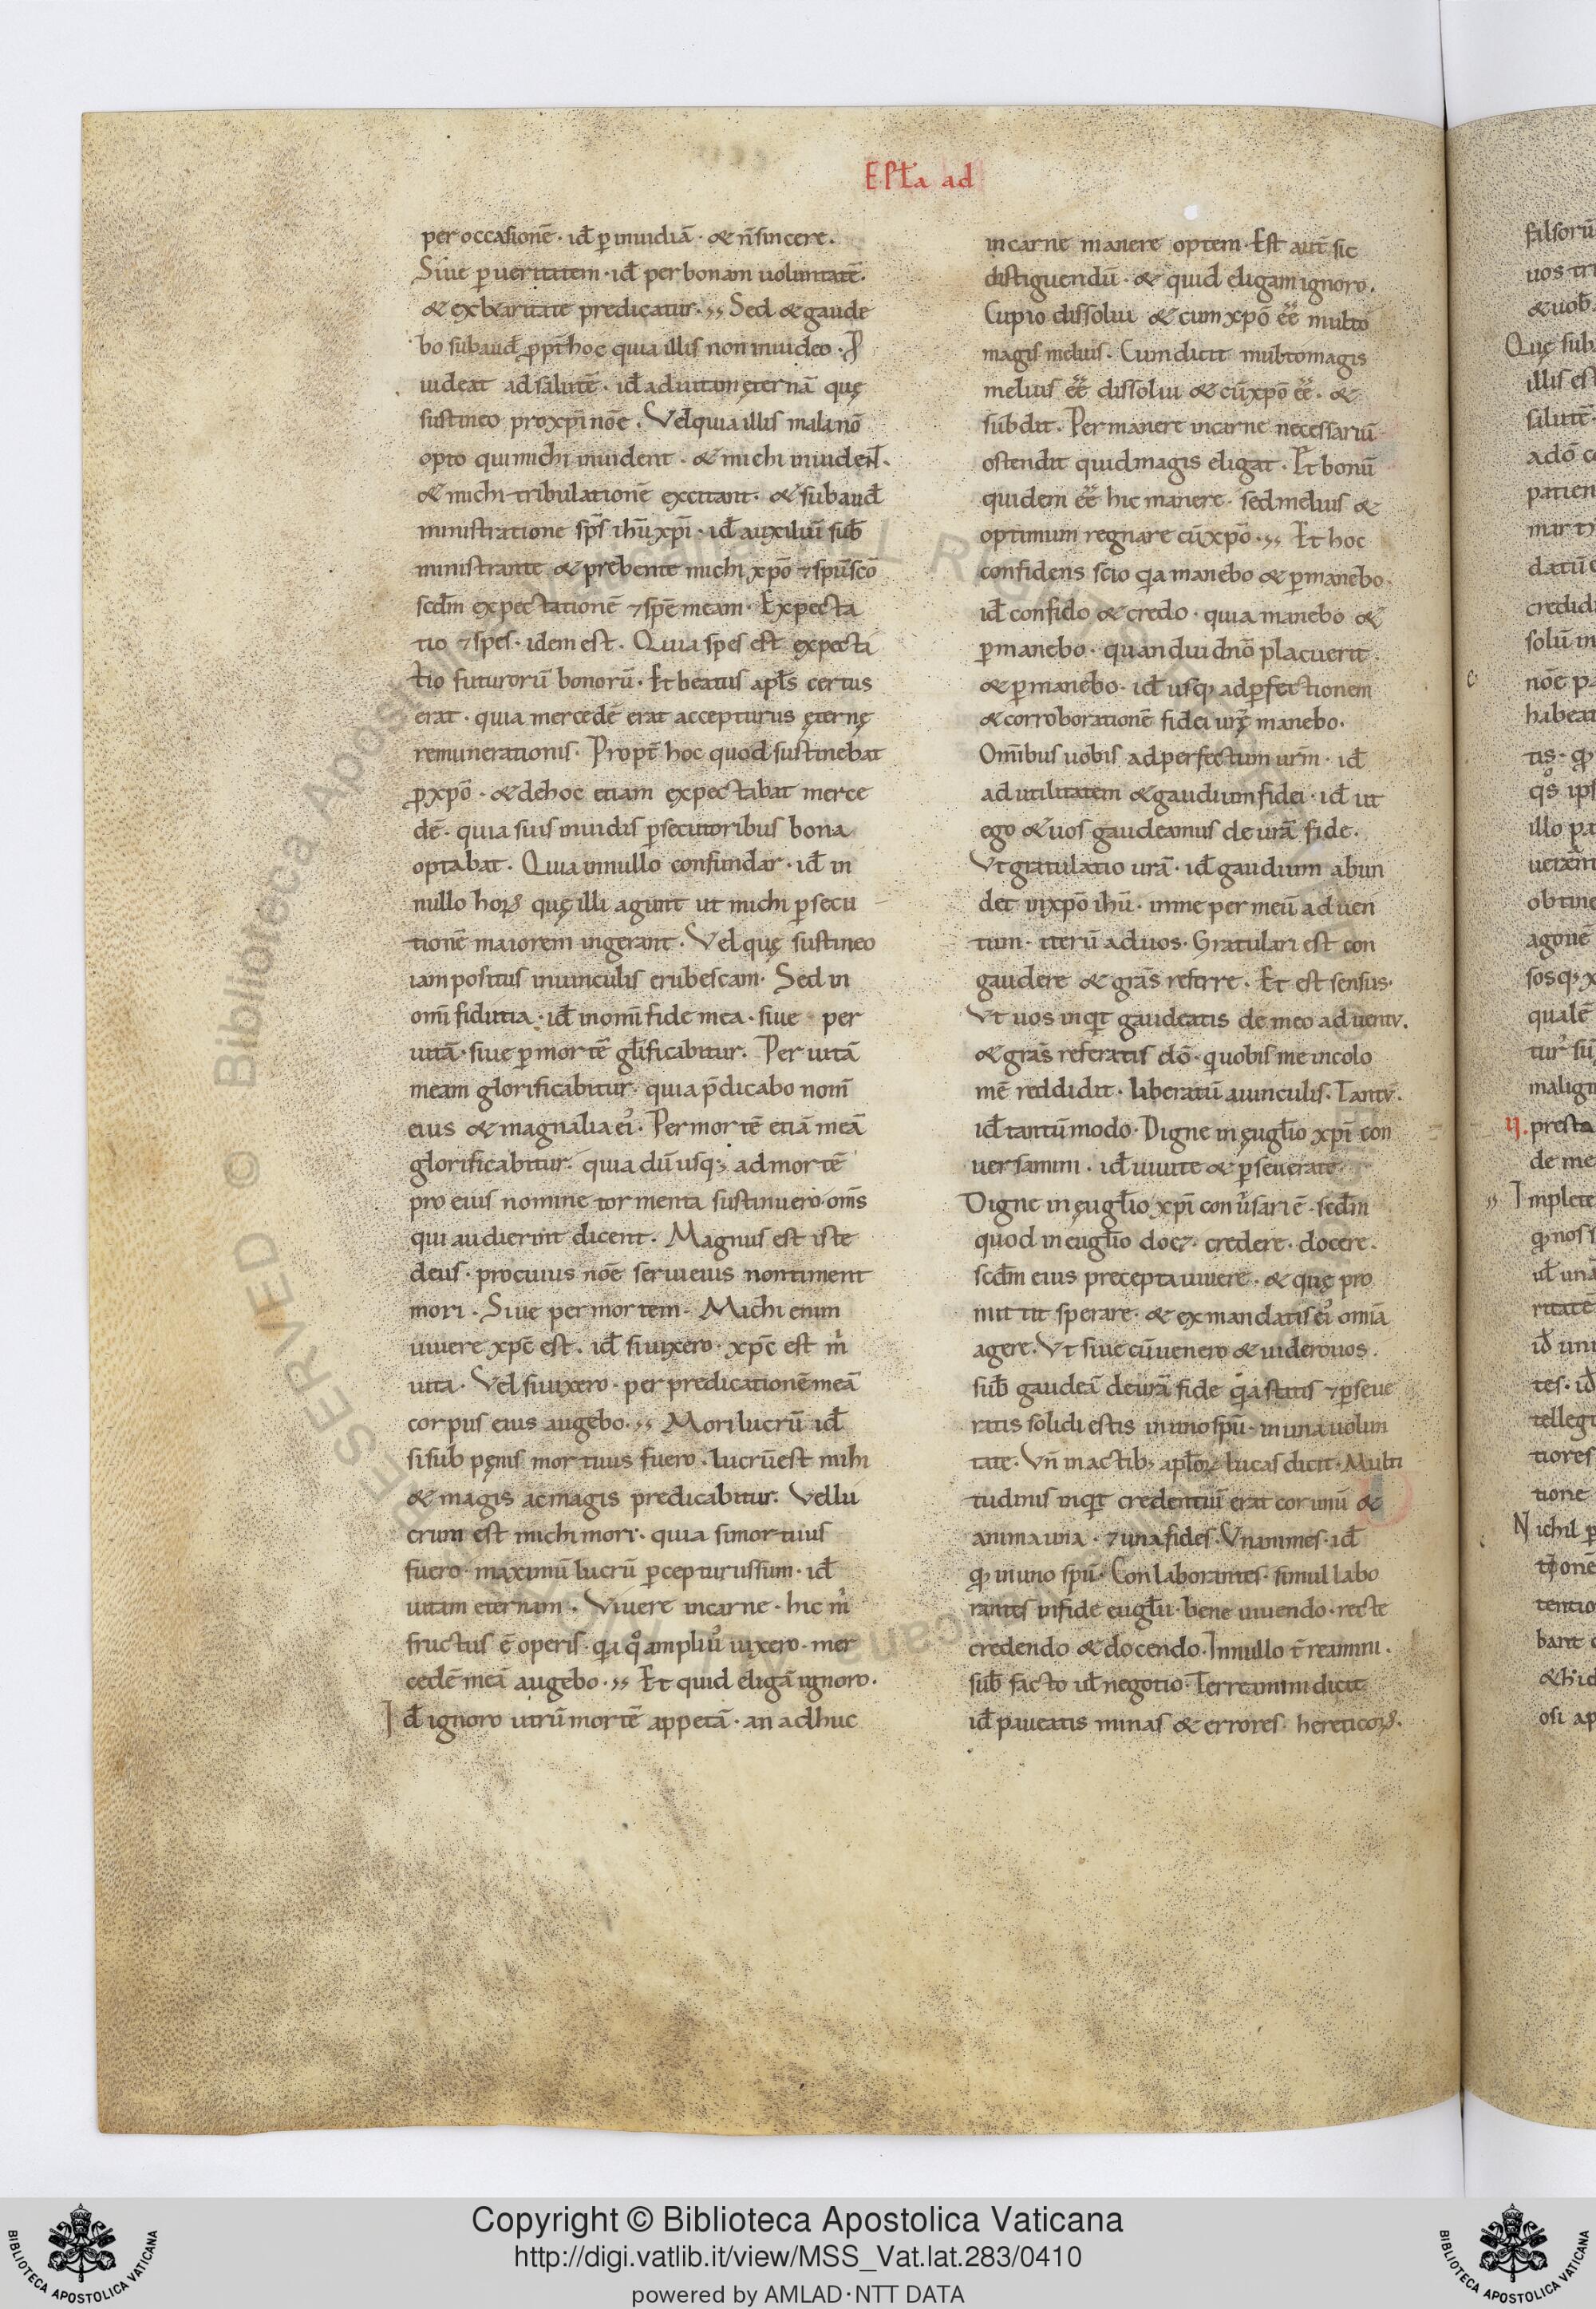 EPła ad
per occasionē · id ̄ p̱ inuidiā · & n̄ sincere.
Siue p̱ ueritatem · id ̄ per bonam uoluntatē.
& ex karitate predicatur · ,, Sed & gaude
bo subaud ̄ ꝓpt ̄ hoc quia illis non inuideo · P
uideat ad salutē · id ̄ ad uitam ęternā quę
sustineo pro xp̄i nōe . Vel quia illis mala nō
opto qui michi inuident · & michi inuideń ·
& michi tribulationē excitant · & subaud ̄
ministratione sp̄s ihū xp̄i · id ̄ auxiliū sub ̄
ministrante & prebente michi xp̄o ⁊ spū sc̄o
scd̄m expectationē ⁊ spē meam · Expecta
tio ⁊ spes · idem est . Quia spes est expecta
tio futurorū bonorū · Et beatus apł's certus
erat · quia mercedē erat accepturus ęternę
remunerationis · Propt ̄ hoc quod sustinebat
ꝓ xp̄o · & de hoc etiam expectabat merce
dē · quia suis inuidis p̱secutoribus bona
optabat . Quia in nullo confundar · id ̄ in
nullo hoꝝ quę illi agunt ut michi p̱secu
tionē maiorem ingerant . Vel quę sustineo
iam positus in uinculis erubescam · Sed in
om̄i fidutia · id ̄ in om̄i fide mea · siue per
uitā · siue p̱ mortē gl̄ificabitur . Per uitā
meam glorificabitur · quia p̄dicabo nom̄
eius & magnalia ei⁹ . Per mortē etiā meā
glorificabitur · quia dū usq; ad mortē
pro eius nomine tormenta sustinuero · om̄s
qui audierint dicent . Magnus est iste
deus · pro cuius nōe serui eius non timent
mori . Siue per mortem · Michi enim
uiuere xp̄c est . id ̄ si uixero · xp̄c est m̊
uita · Vel si uixero · per predicationē meā
corpus eius augebo · ,, Mori lucrū id ̄
si sub pęnis mortuus fuero · lucrū est mihi
& magis ac magis predicabitur . Vel lu
crum est michi mori · quia si mortuus
fuero · maximū lucrū p̱cepturus sum · id ̄
uitam eternam . Viuere in carne · hic m̊
fructus ē operis · q̱a q̊ ampli⁹ uixero · mer
cedē meā augebo · ,, Et quid eligā ignoro ·
Id ̄ ignoro utrū mortē appetā · an adhuc
in carne manere optem · Est aut ̄ sic
distiguendū · & quid eligam ignoro .
Cupio dissolui & cum xp̄o ēē multo
magis melius . Cum dicit multo magis
melius ēē dissolui & cū xp̄o ēē · &
subdit . Permanere in carne necessariū
ostendit quid magis eligat . Et bonū
quidem ēē hic manere · sed melius &
optimum regnare cū xp̄o · ,, Et hoc
confidens scio q̱a manebo & p̱manebo ·
id ̄ confido & credo · quia manebo &
p̱manebo · quandiu dn̄o placuerit .
& p̱manebo · id ̄ usq; ad p̱fectionem
& corroborationē fidei urę̄ manebo .
Om̄ibus uobis ad perfectum urm̄ · id ̄
ad utilitatem & gaudium fidei · id ̄ ut
ego & uos gaudeamus de urā fide .
Vt gratulatio urā · id ̄ gaudium abun
det in xp̄o ihū · in me per meū aduen
tum · iterū ad uos · Gratulari est con
gaudere & grās referre . Et est sensus ·
Vt uos inqt ̄ gaudeatis de meo aduentu .
& grās referatis dō · q uobis me incolo
mē reddidit · liberatū a uinculis . Tantū .
id ̄ tantū modo · Digne in ęugl̄io xp̄i con
uersamini . id ̄ uiuite & p̱seuerate
Digne in ęugl̄io xp̄i conu̓sari ē · scd̄m
quod in eugl̄io doc⁊ · credere · docere .
scd̄m eius precepta uiuere · & quę pro
mittit sperare · & ex mandatis ei⁹ omīa
agere . Vt siue cū uenero & uidero uos .
sub ̄ gaudeā de urā fide q̱a statis ⁊ p̱seue
ratis solidi estis in uno spū · in una uolun
tate . Vn̄ in actib; apl̄oꝝ lucas dicit . Multi
tudinis inqt ̄ credentiū erat cor unū &
anima una · ⁊ una fides . Vnanimes · id ̄
ꝙ in uno spū . Con laborantes · simul labo
rantes in fide eugl̄ii · bene uiuendo · recte
credendo & docendo . In nullo t ̄reamini .
sub ̄ facto ut̄ negotio . Terreamini dicit
id ̄ paueatis minas & errores hereticoꝝ .
falsorū
uos tri
& uob
Quę sub
illis est
salutē
a dō c
patien
mar ti
datū
credid
solū in
nōe pa
habea
tis · ꝙ
q̊s ips
illo pa
obtine
agonē
sosq;
qualē
malign
presta
de me
Implete
ꝙ nos s
ul̄ una
ritatē
id ̄ uni
tes · id ̄
tellegi
tiores
tione
Nichil p
tentio
bant
osi ap
Copyright © Biblioteca Apostolica Vaticana
http://digi.vatlib.it/view/MSS_Vat.lat.283/0410
powered by AMLAD·NTT DATA
BIBLIOTECA APOSTOLICA VATICANA
BIBLIOTECA APOSTOLICA VATICANA